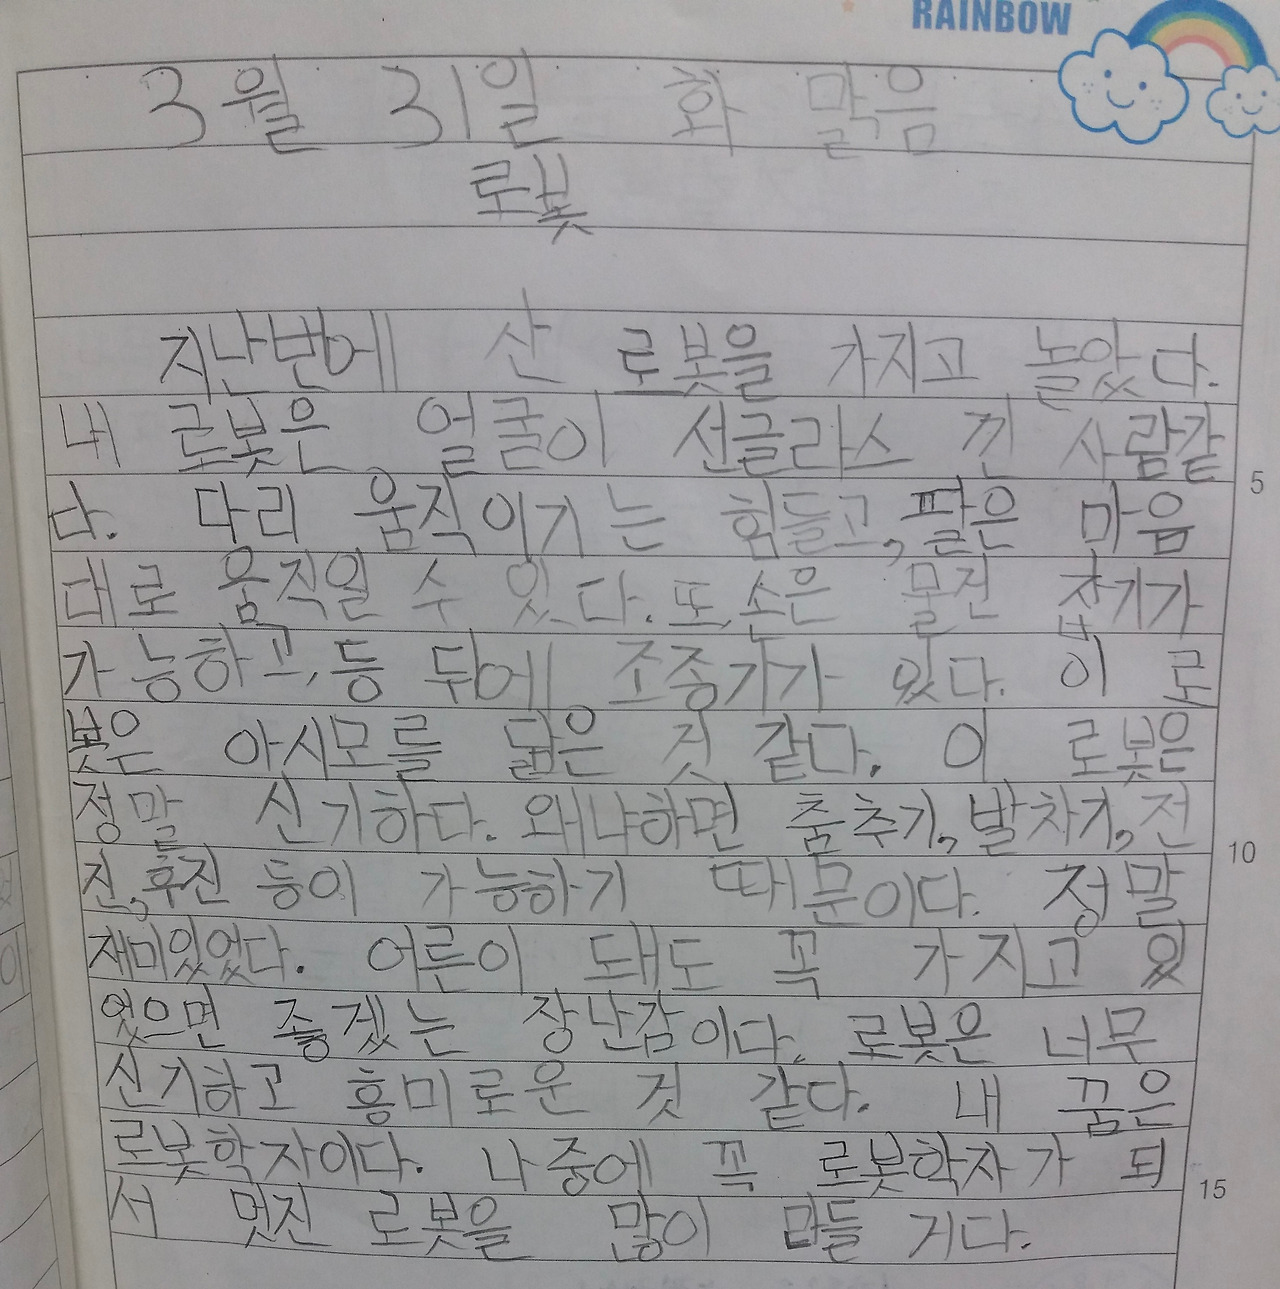 RAINBOW
3월 31일 화 맑음
로봇
지난번에 산 로봇을 가지고 놀았다.
내 로봇은, 얼굴이 선글라스 낀 사람같
다. 다리 움직이기는 힘들고, 팔은 마음
대로 움직일 수 있다. 또, 손은 물건 잡기가
가능하고, 등 뒤에 조종기가 있다. 이 로
봇은 아시모를 닮은 것 같다. 이 로봇은
5
정말 신기하다. 왜냐하면 춤추기, 발차기, 전
10
진, 후진 등이 가능하기 때문이다. 정말
재미있었다. 어른이 돼도 꼭 가지고 있
었으면 좋겠는 장난감이다. 로봇은 너무
신기하고 흥미로운 것 같다. 내 꿈은
로봇학자이다. 나중에 꼭 로봇학자가 되
15
서 멋진 로봇을 많이 만들 거다.